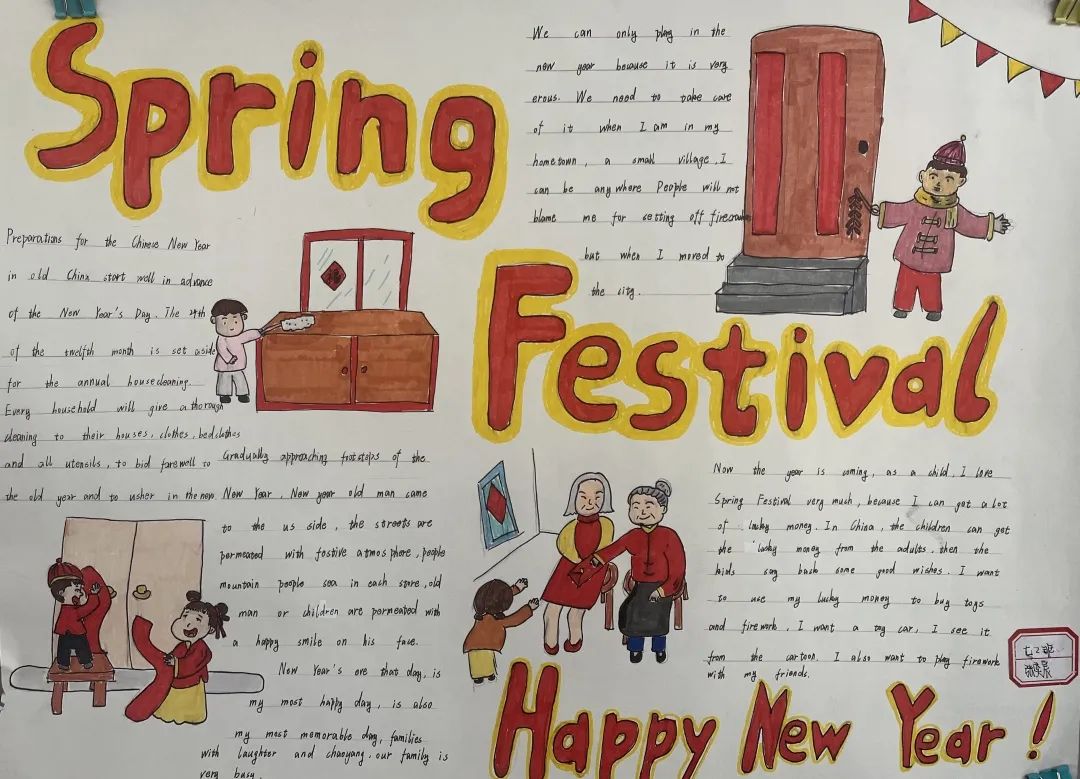 Spring
Festival
Happy New Year!
Preparations for the Chinese New Year
in old China start well in advance
of the New Year's Day. The 24th
of the twelfth month is set aside
for the annual housecleaning.
Every household will give a thorough
cleaning to their houses, clothes, bedclothes
and all utensils, to bid farewell to
the old year and to usher in the new
Gradually approaching footsteps of the
New Year, New year old man came
to the us side, the streets are
permeated with festive atmosphere, people
mountain people sea in each store, old
man or children are permeated with
a happy smile on his face.
New Year's eve that day, is
my most happy day, is also
my most memorable day, families
with laughter and chaoyang. our family is
very busy.
We can only play in the
new year because it is very
erous. We need to take care
of it when I am in my
hometown, a small village, I
can be anywhere People will not
blame me for setting off
but when I moved to
the city.
福
Now the year is coming, as a child, I love
Spring Festival very much, because I can get a lot
of lucky money. In China, the children can get
the lucky money from the adults, then the
kids say back some good wishes. I want
to use my lucky money to buy toys
and firework, I want a toy car, I see it
from the cartoon. I also want to play firework
with my friends.